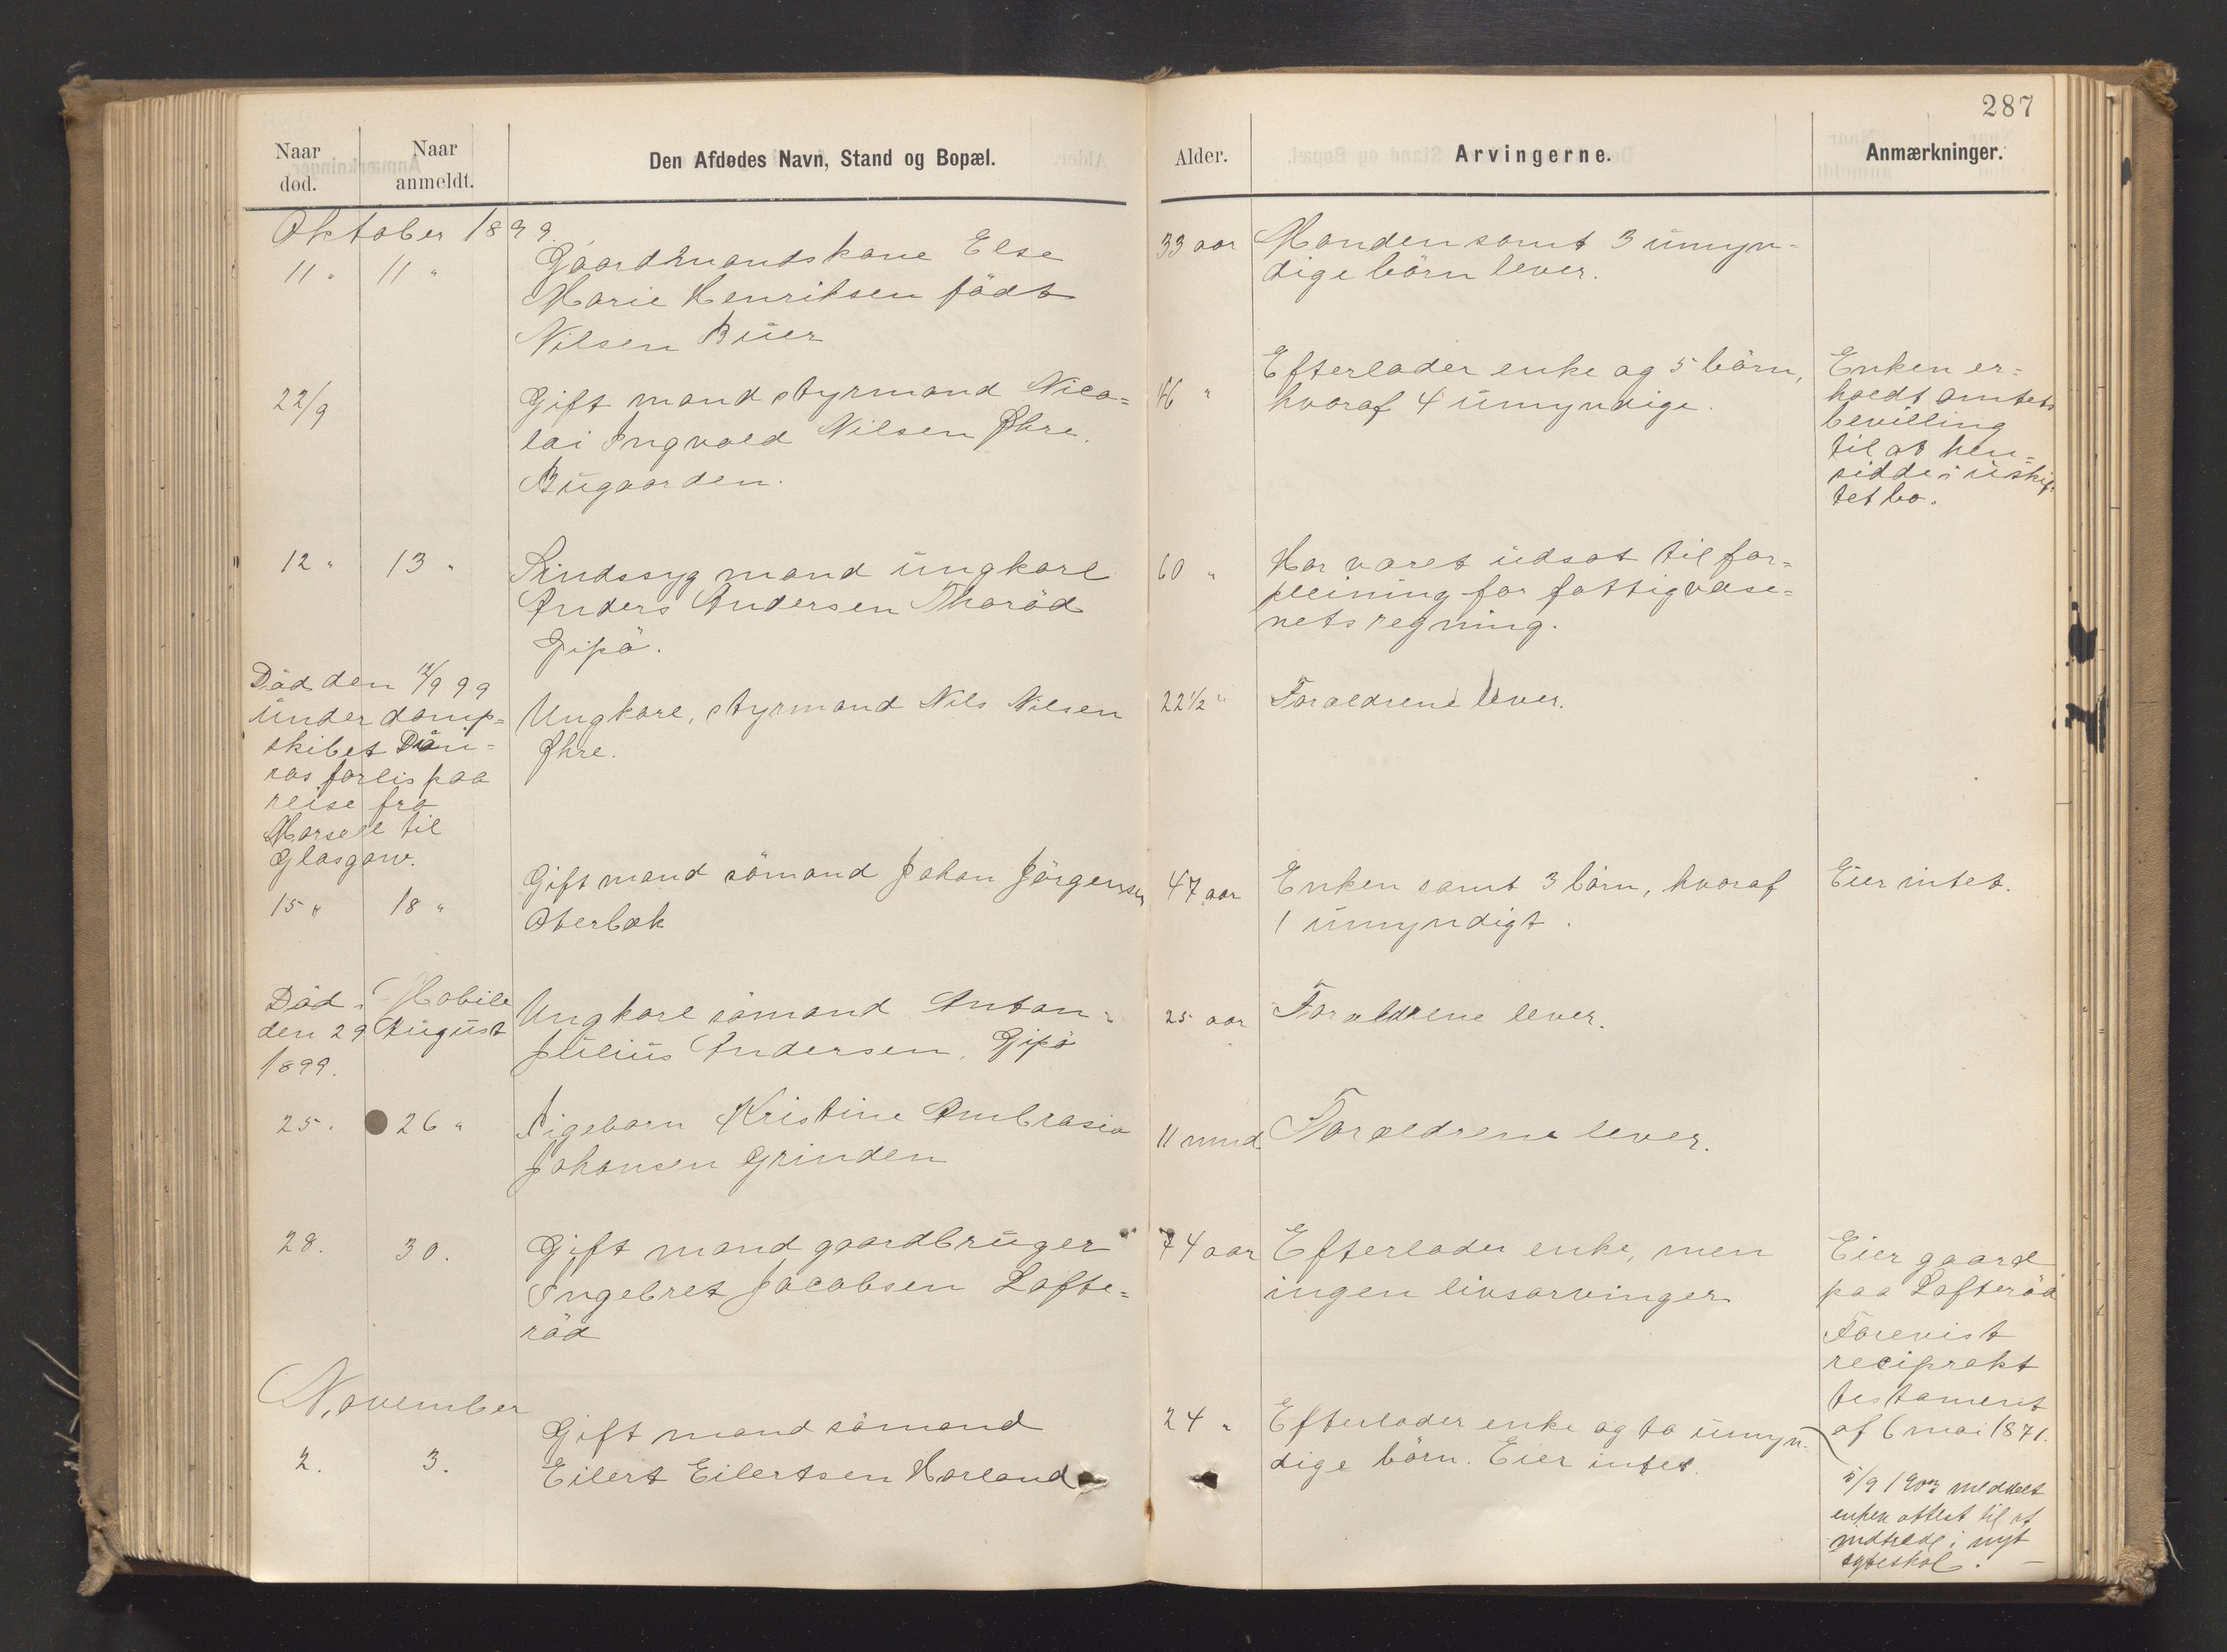 287
Naar
død.
Naar
anmeldt.
Den Afdødes Navn, Stand og Bopæl.
Alder.
Arvingerne.
Anmærkninger.
Oktober 1899
11 " 11 "
Gaardmandskone Else
Marie Henriksen födt
Nilsen Buer
33 aar
Manden samt 3 umyn-
dige börn lever.
22/9
Gift mand styrmand Nico=
lai Ingvald Nilsen Ihre.
Bugaarden.
46 "
Efterlader enke og 5 börn,
hvoraf 4 umyndige.
Enken er=
holdt amtets
bevilling
til at hen=
sidde i uskif-
tet bo.
12 " 13 "
Sindssyg mand ungkarl
Anders Andersen Tharöd
Gipö.
60 "
Har været udsat til for=
pleining for fattigvæse=
nets regning.
Död den 12/9 99
under damp=
skibet
forlis paa
reise fra
Marsell til
Glasgow.
Ungkarl, styrmand Nils Nilsen
Ihre.
22 1/2 "
Forældrene lever.
15 " 18 "
Gift mand sömand Johan Jörgensen
Oterbæk
47 aar
Enken samt 3 börn, hvoraf
1 umyndigt.
Eier intet.
Död i Mobile
den 29 August
1899.
Ungkarl sömand Anton
Julius Andersen, Gipö
25 aar
Forældrene lever.
25. 26 "
Pigebarn Kristine Ambrosia
Johansen Grinden
11 mnd
Forældrene lever.
28. 30.
Gift mand gaardbruger
Ingebret Jacobsen Lofte=
röd
74 aar
Efterlader enke, men
ingen livsarvinger
Eier gaard
paa Lofteröd
Forevist
reciprokt
testament
af 6 mai 1871.
November
2. 3.
Gift mand sömand
Eilert Eilertsen Horland
24 "
Efterlader enke og to umyn-
dige börn. Eier intet.
5/9 1903 meddelt
enken attest til at
indtræde i nyt
egteskab.